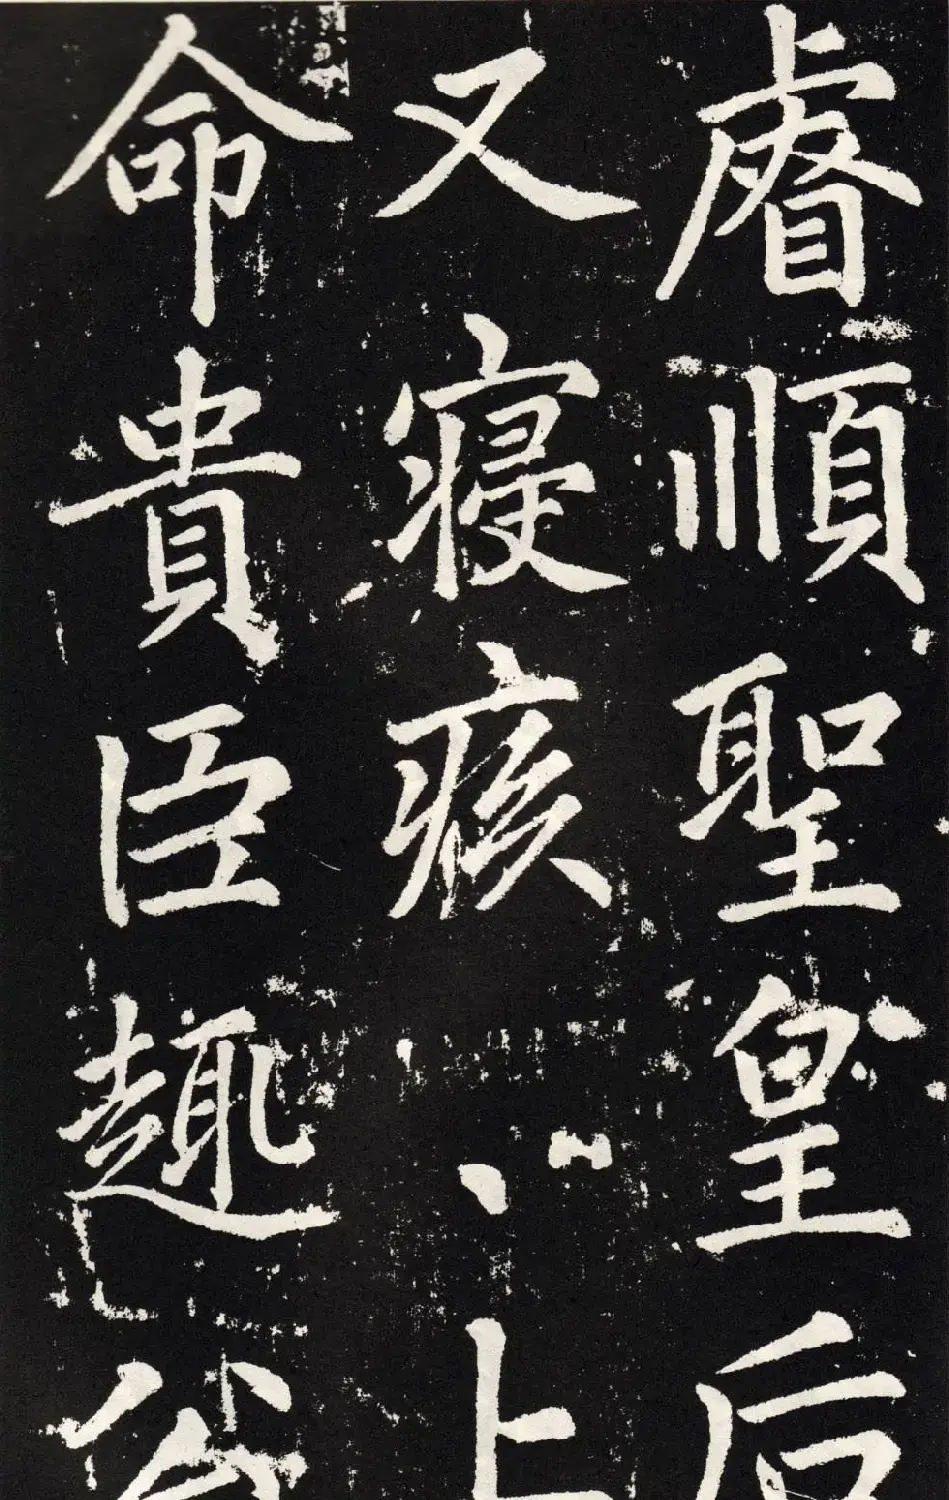 睿順聖皇后
又寢疾上
命貴臣趣公